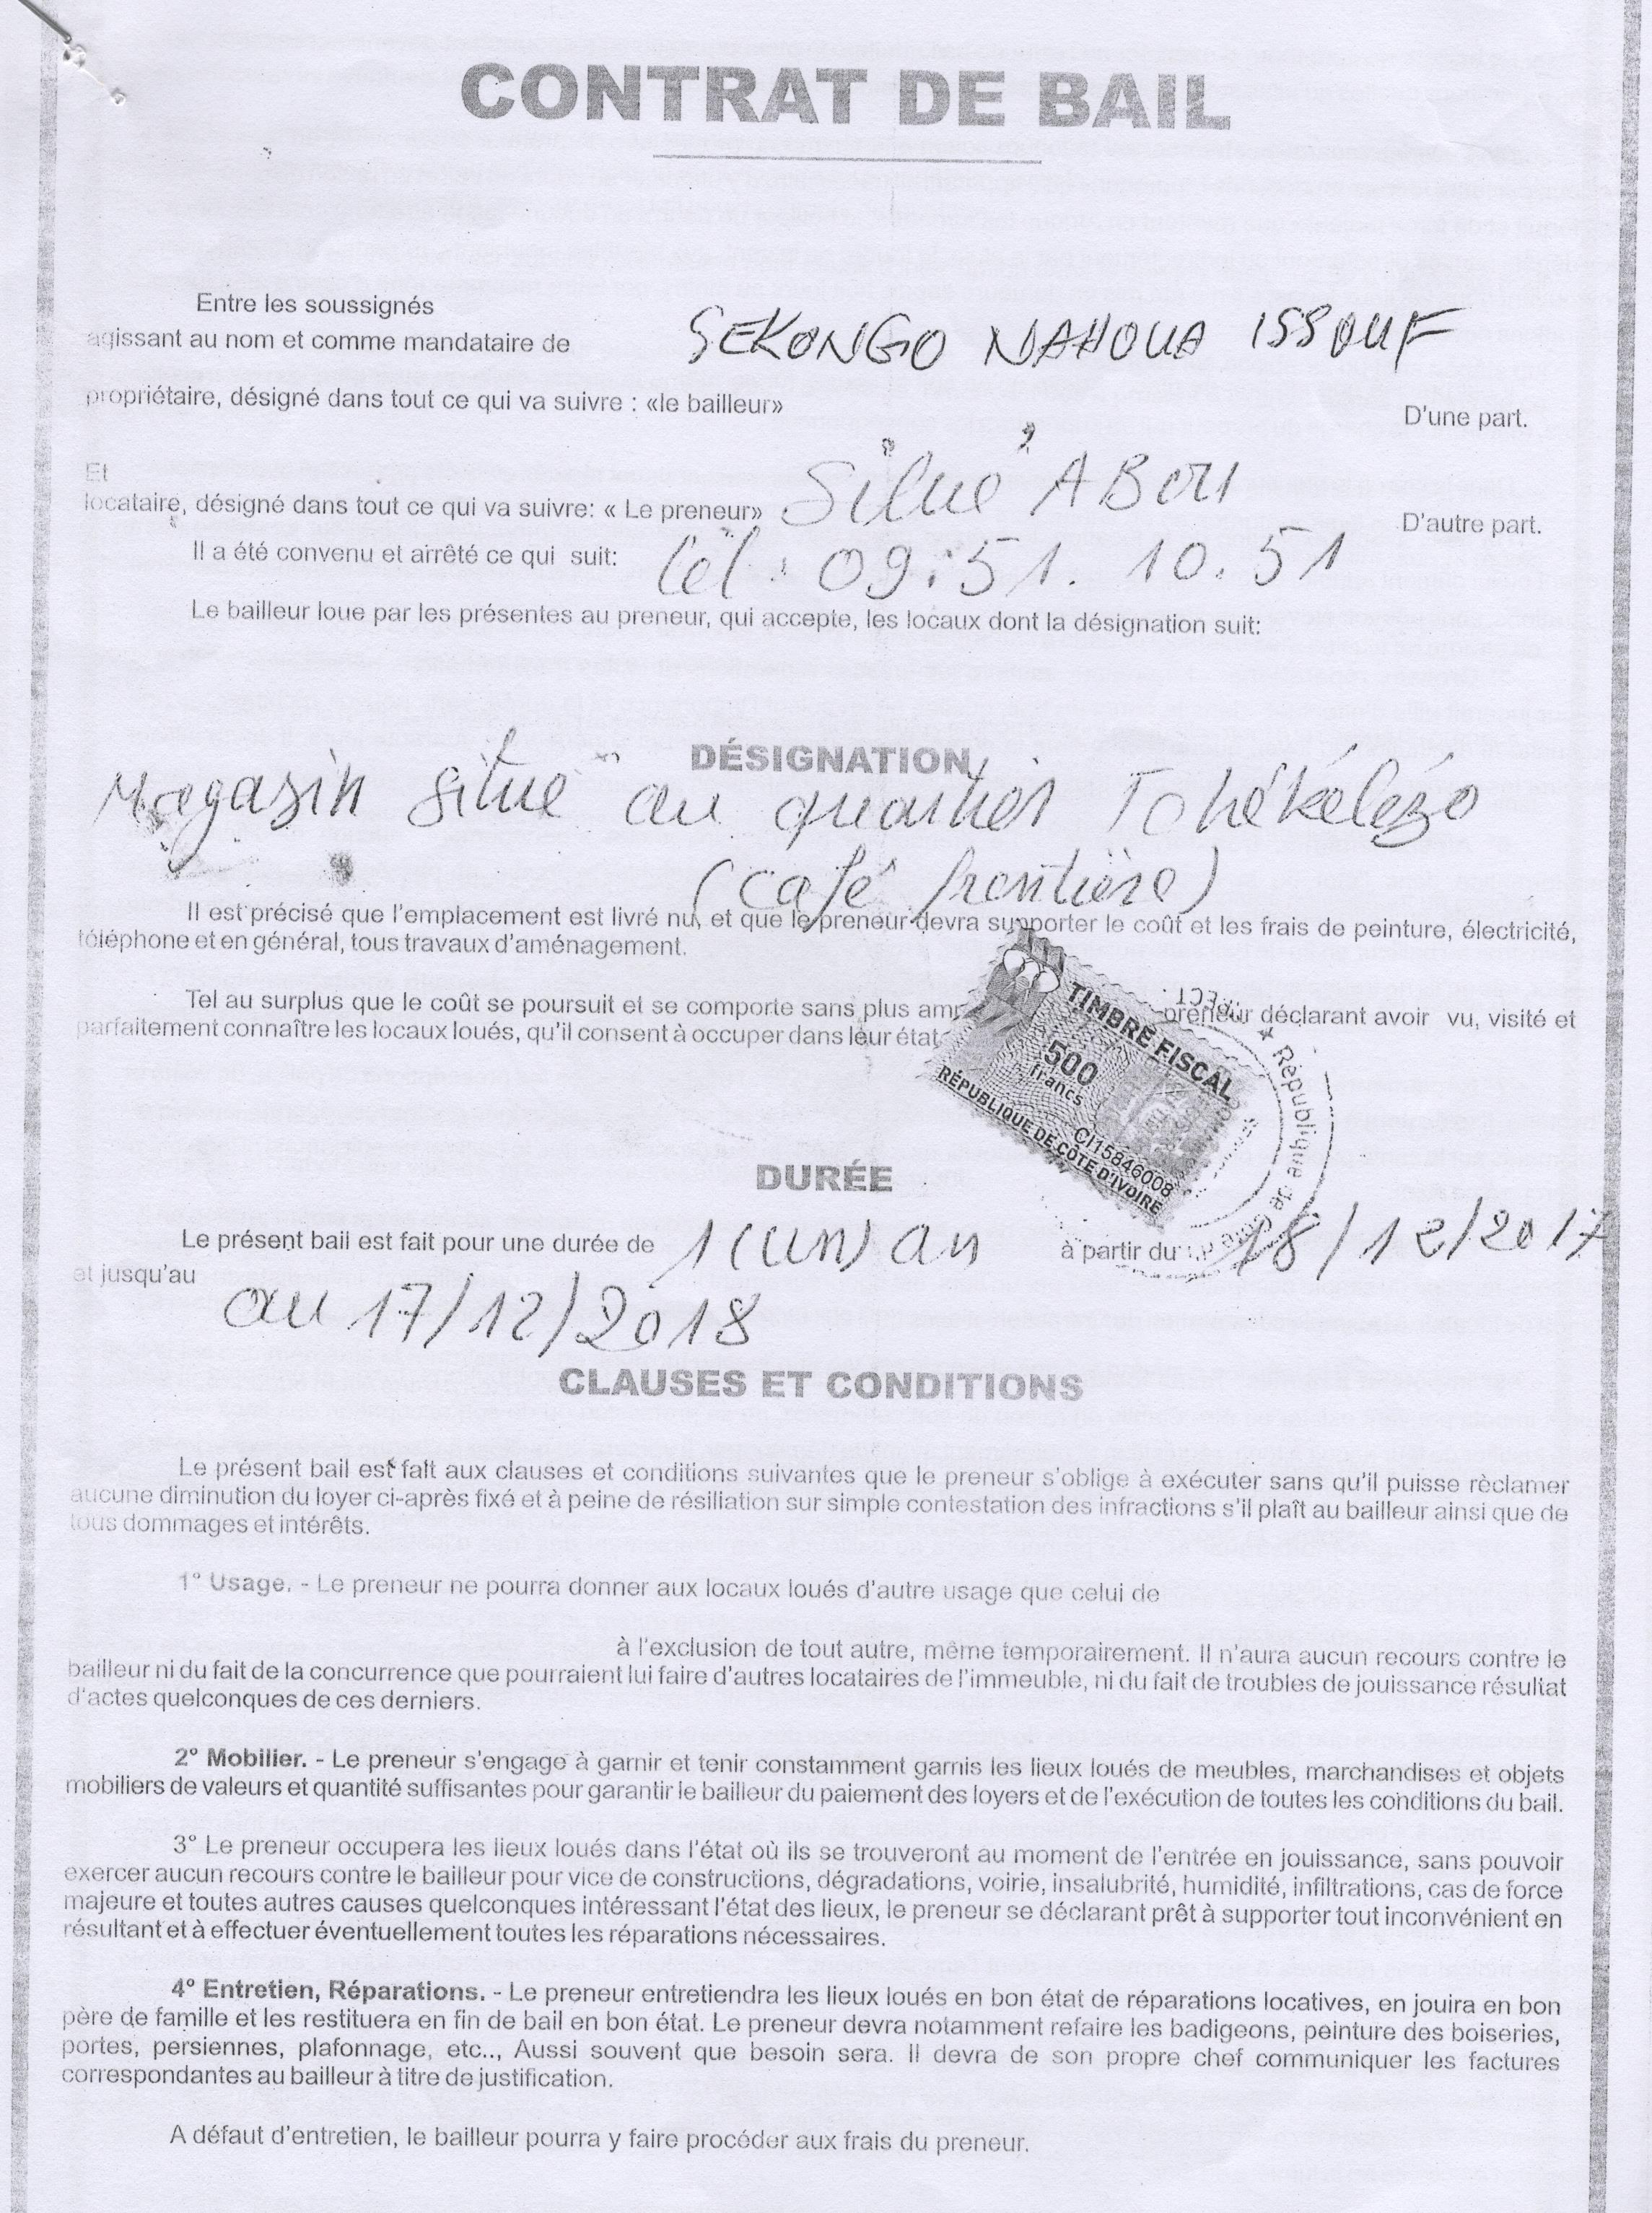 CONTRAT DE BAIL
Entre les soussignés
agissant au nom et comme mandataire de SEKONGO NAHOUA ISSOUF
propriétaire, désigné dans tout ce qui va suivre : «le bailleur»
D'une part.
Et
locataire, désigné dans tout ce qui va suivre: « Le preneur» Silué ABOU
D'autre part.
Il a été convenu et arrêté ce qui suit: Tél : 09.51.10.51
Le bailleur loue par les présentes au preneur, qui accepte, les locaux dont la désignation suit:
DÉSIGNATION
Magasin situé au quartier Tchékélézo
(café frontière)
Il est précisé que l'emplacement est livré nu, et que le preneur devra supporter le coût et les frais de peinture, électricité,
téléphone et en général, tous travaux d'aménagement.
Tel au surplus que le coût se poursuit et se comporte sans plus am preneur déclarant avoir vu, visité et
parfaitement connaître les locaux loués, qu'il consent à occuper dans leur état
TIMBRE FISCAL
500
francs
CI15846008
RÉPUBLIQUE DE CÔTE D'IVOIRE
République de Côte d'I
DURÉE
Le présent bail est fait pour une durée de 1 (un) an à partir du 18/12/2017
et jusqu'au
au 17/12/2018
CLAUSES ET CONDITIONS
Le présent bail est fait aux clauses et conditions suivantes que le preneur s'oblige à exécuter sans qu'il puisse rèclamer
aucune diminution du loyer ci-après fixé et à peine de résiliation sur simple contestation des infractions s'il plaît au bailleur ainsi que de
tous dommages et intérêts.
1° Usage. - Le preneur ne pourra donner aux locaux loués d'autre usage que celui de
à l'exclusion de tout autre, même temporairement. Il n'aura aucun recours contre le
bailleur ni du fait de la concurrence que pourraient lui faire d'autres locataires de l'immeuble, ni du fait de troubles de jouissance résultat
d'actes quelconques de ces derniers.
2° Mobilier. - Le preneur s'engage à garnir et tenir constamment garnis les lieux loués de meubles, marchandises et objets
mobiliers de valeurs et quantité suffisantes pour garantir le bailleur du paiement des loyers et de l'exécution de toutes les conditions du bail.
3° Le preneur occupera les lieux loués dans l'état où ils se trouveront au moment de l'entrée en jouissance, sans pouvoir
exercer aucun recours contre le bailleur pour vice de constructions, dégradations, voirie, insalubrité, humidité, infiltrations, cas de force
majeure et toutes autres causes quelconques intéressant l'état des lieux, le preneur se déclarant prêt à supporter tout inconvénient en
résultant et à effectuer éventuellement toutes les réparations nécessaires.
4° Entretien, Réparations. - Le preneur entretiendra les lieux loués en bon état de réparations locatives, en jouira en bon
père de famille et les restituera en fin de bail en bon état. Le preneur devra notamment refaire les badigeons, peinture des boiseries,
portes, persiennes, plafonnage, etc.., Aussi souvent que besoin sera. Il devra de son propre chef communiquer les factures
correspondantes au bailleur à titre de justification.
A défaut d'entretien, le bailleur pourra y faire procéder aux frais du preneur.